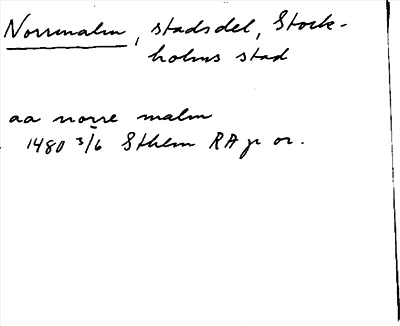 Norrmalm, stadsdel, Stock-
holms stad
aa norre malm
1480 3/6 Sthlm RAp or.